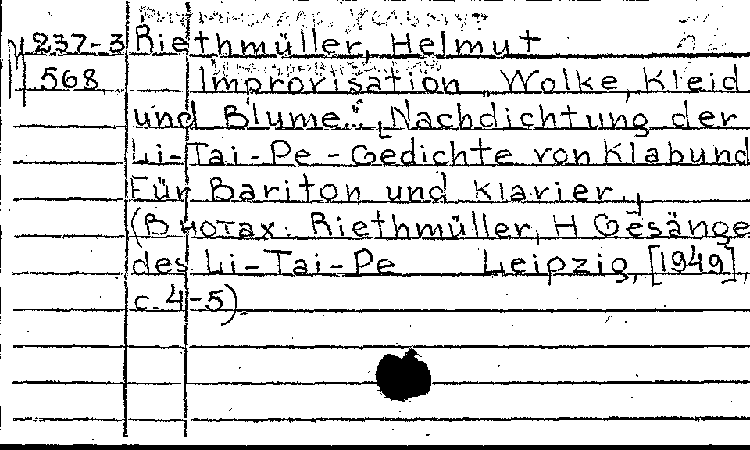 М 237-3 Riethmüller, Helmut
568 Improvisation „Wolke, Kleid
und Blume.“ [Nachdichtung der
Li-Tai-Pe-Gedichte von Klabund
Für Bariton und Klavier.]
(В нотах: Riethmüller, H Gesänge
des Li-Tai-Pe Leipzig, [1949],
с. 4-5)